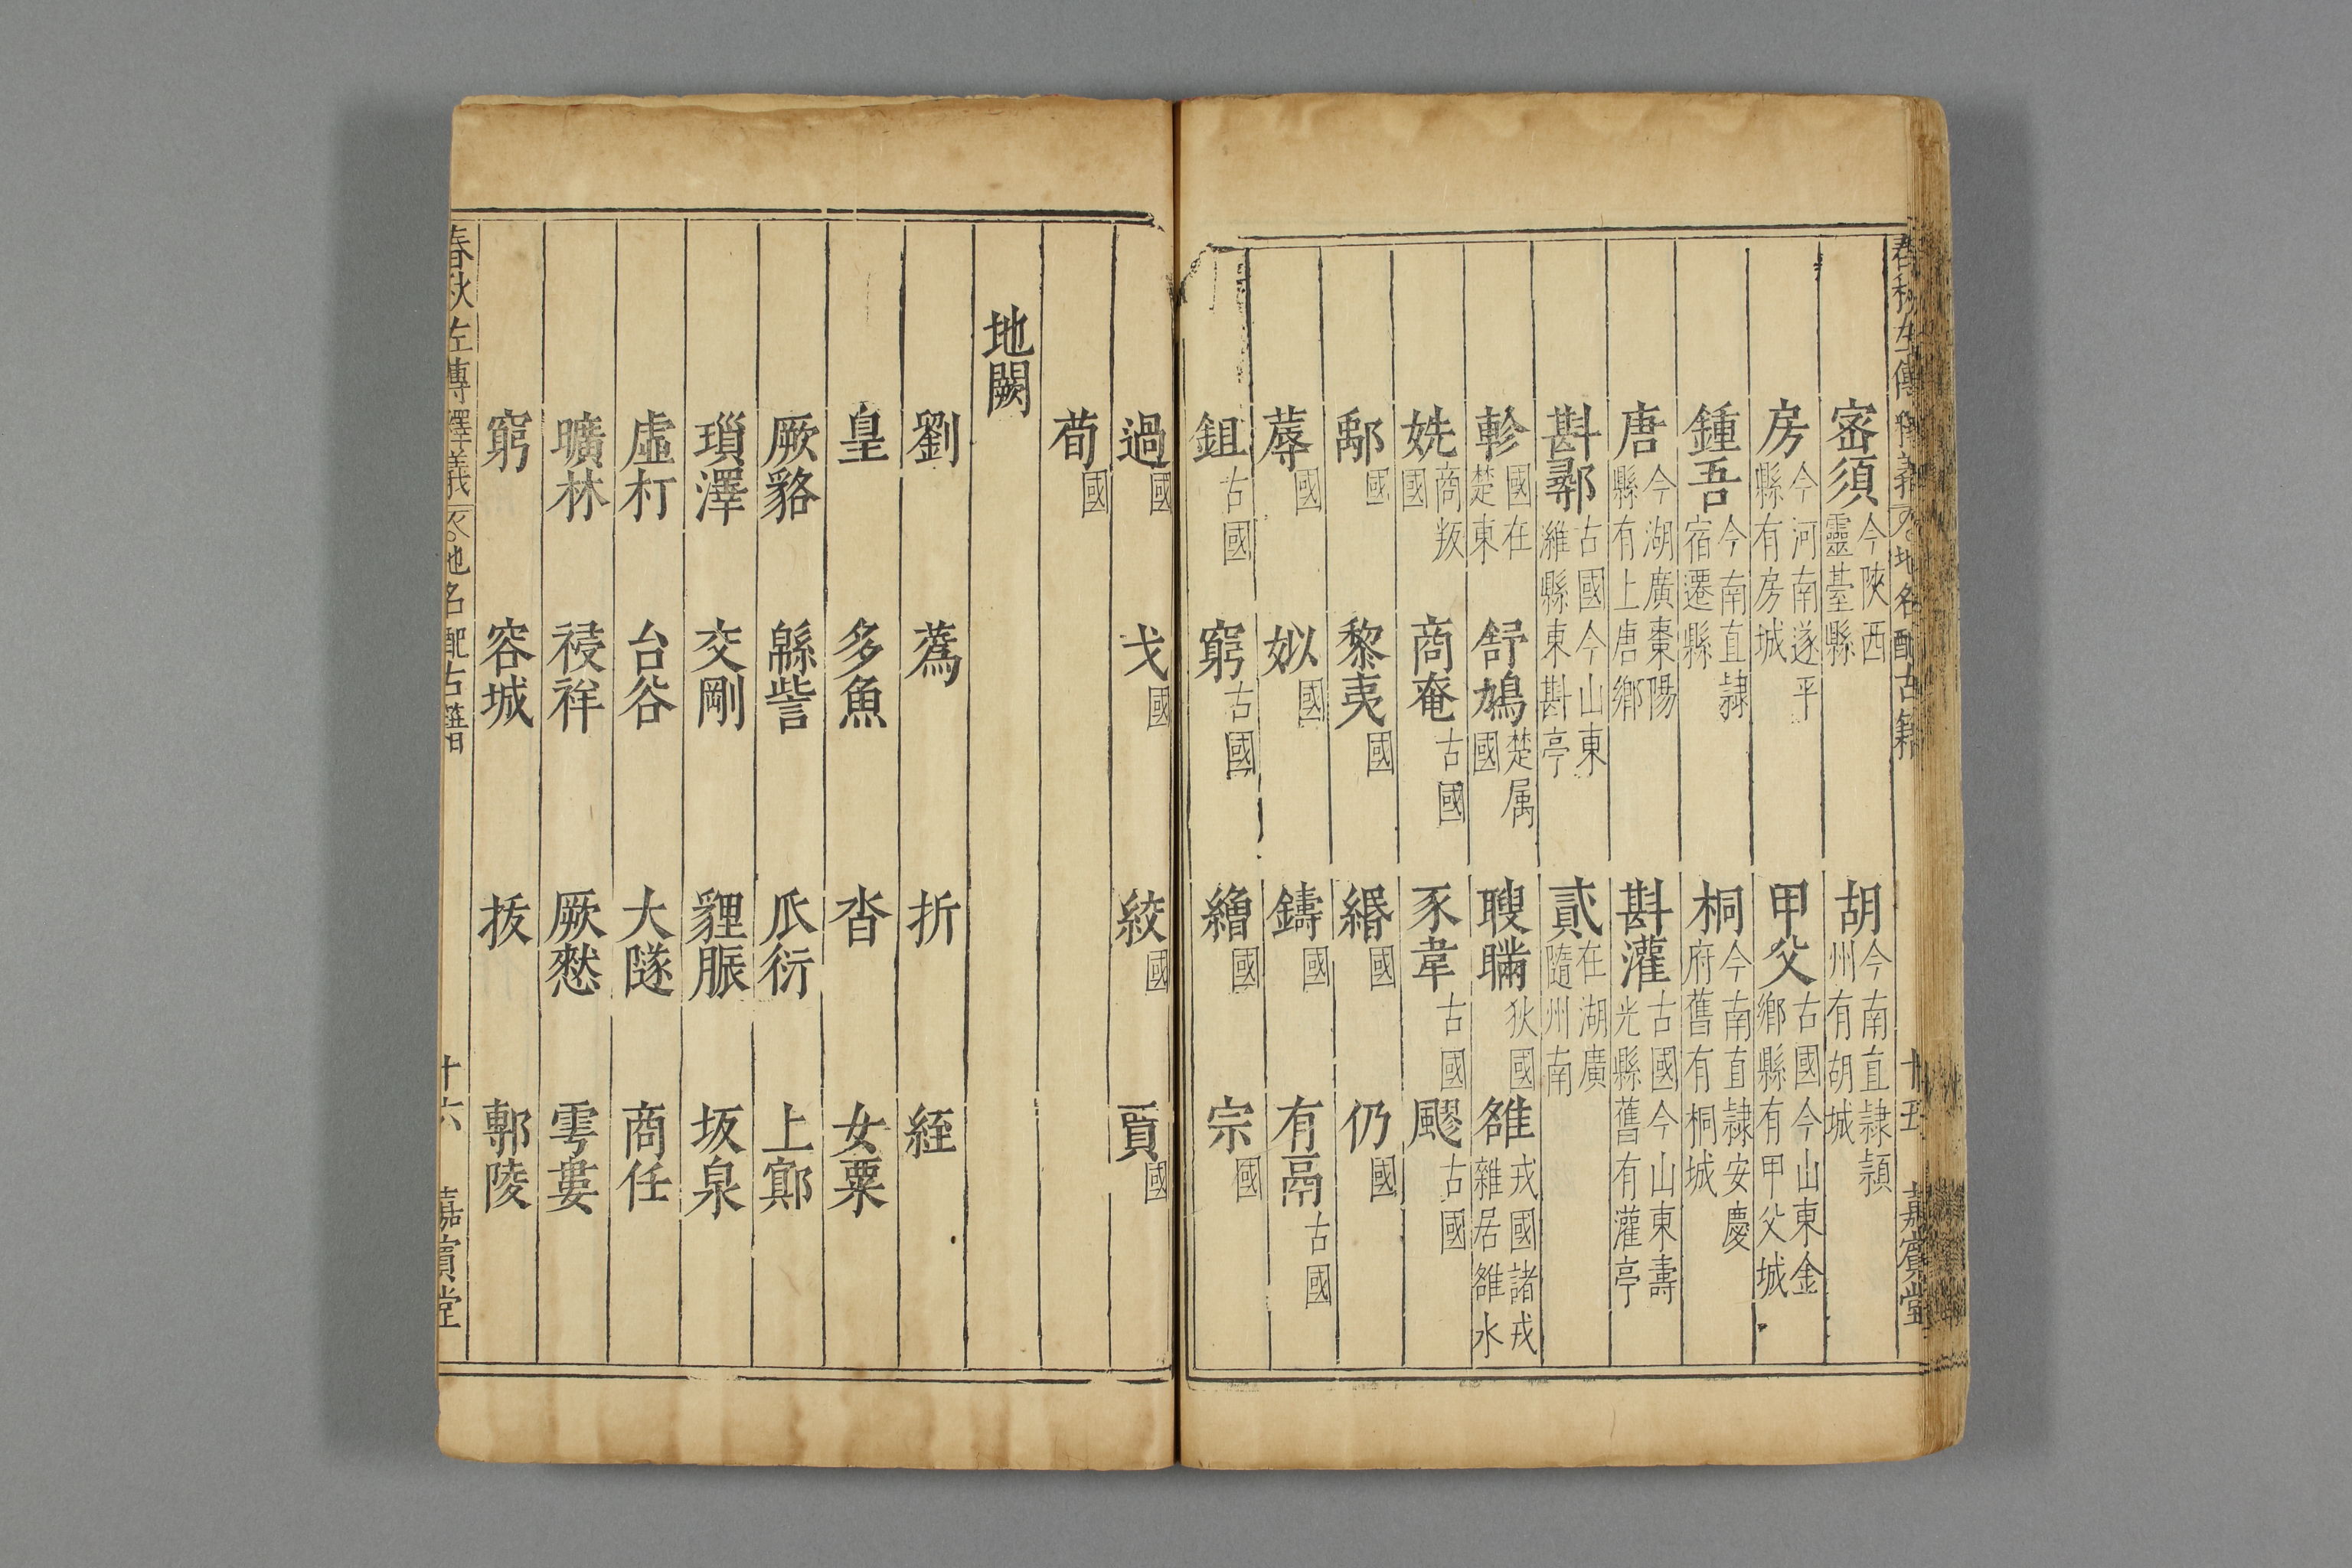 春秋左傳釋義 地名配古籍 十五 嘉賓堂
密須今陝西靈臺縣 胡今南直隷頴州有胡城
房今河南遂平縣有房城 甲父古國今山東金鄉縣有甲父城
鍾吾今南直隷宿遷縣 桐今南直隷安慶府舊有桐城
唐今湖廣棗陽縣有上唐鄉 斟灌古國今山東壽光縣舊有灌亭
斟鄩古國今山東濰縣東斟亭 貳在湖廣隨州南
軫國在楚東 舒鳩楚属國 瞍瞞狄國 雒戎國諸戎雜居雒水
姺商叛國 商奄古國 豕韋古國 飂古國
鄅國 黎夷國 緡國 仍國
蓐國 姒國 鑄國 有鬲古國
鉏古國 窮古國 繒國 宗國
過國 戈國 絞國 賈國
荀國
地闕
劉 蒍 折 絰
皇 多魚 沓 女栗
厥貉 緜訾 瓜衍 上鄍
瑣澤 交剛 貍脤 坂泉
虛朾 台谷 大隧 商任
曠林 祲祥 厥憖 雩婁
窮 容城 拔 郹陵
春秋左傳釋義 地名配古籍 十六 嘉賓堂